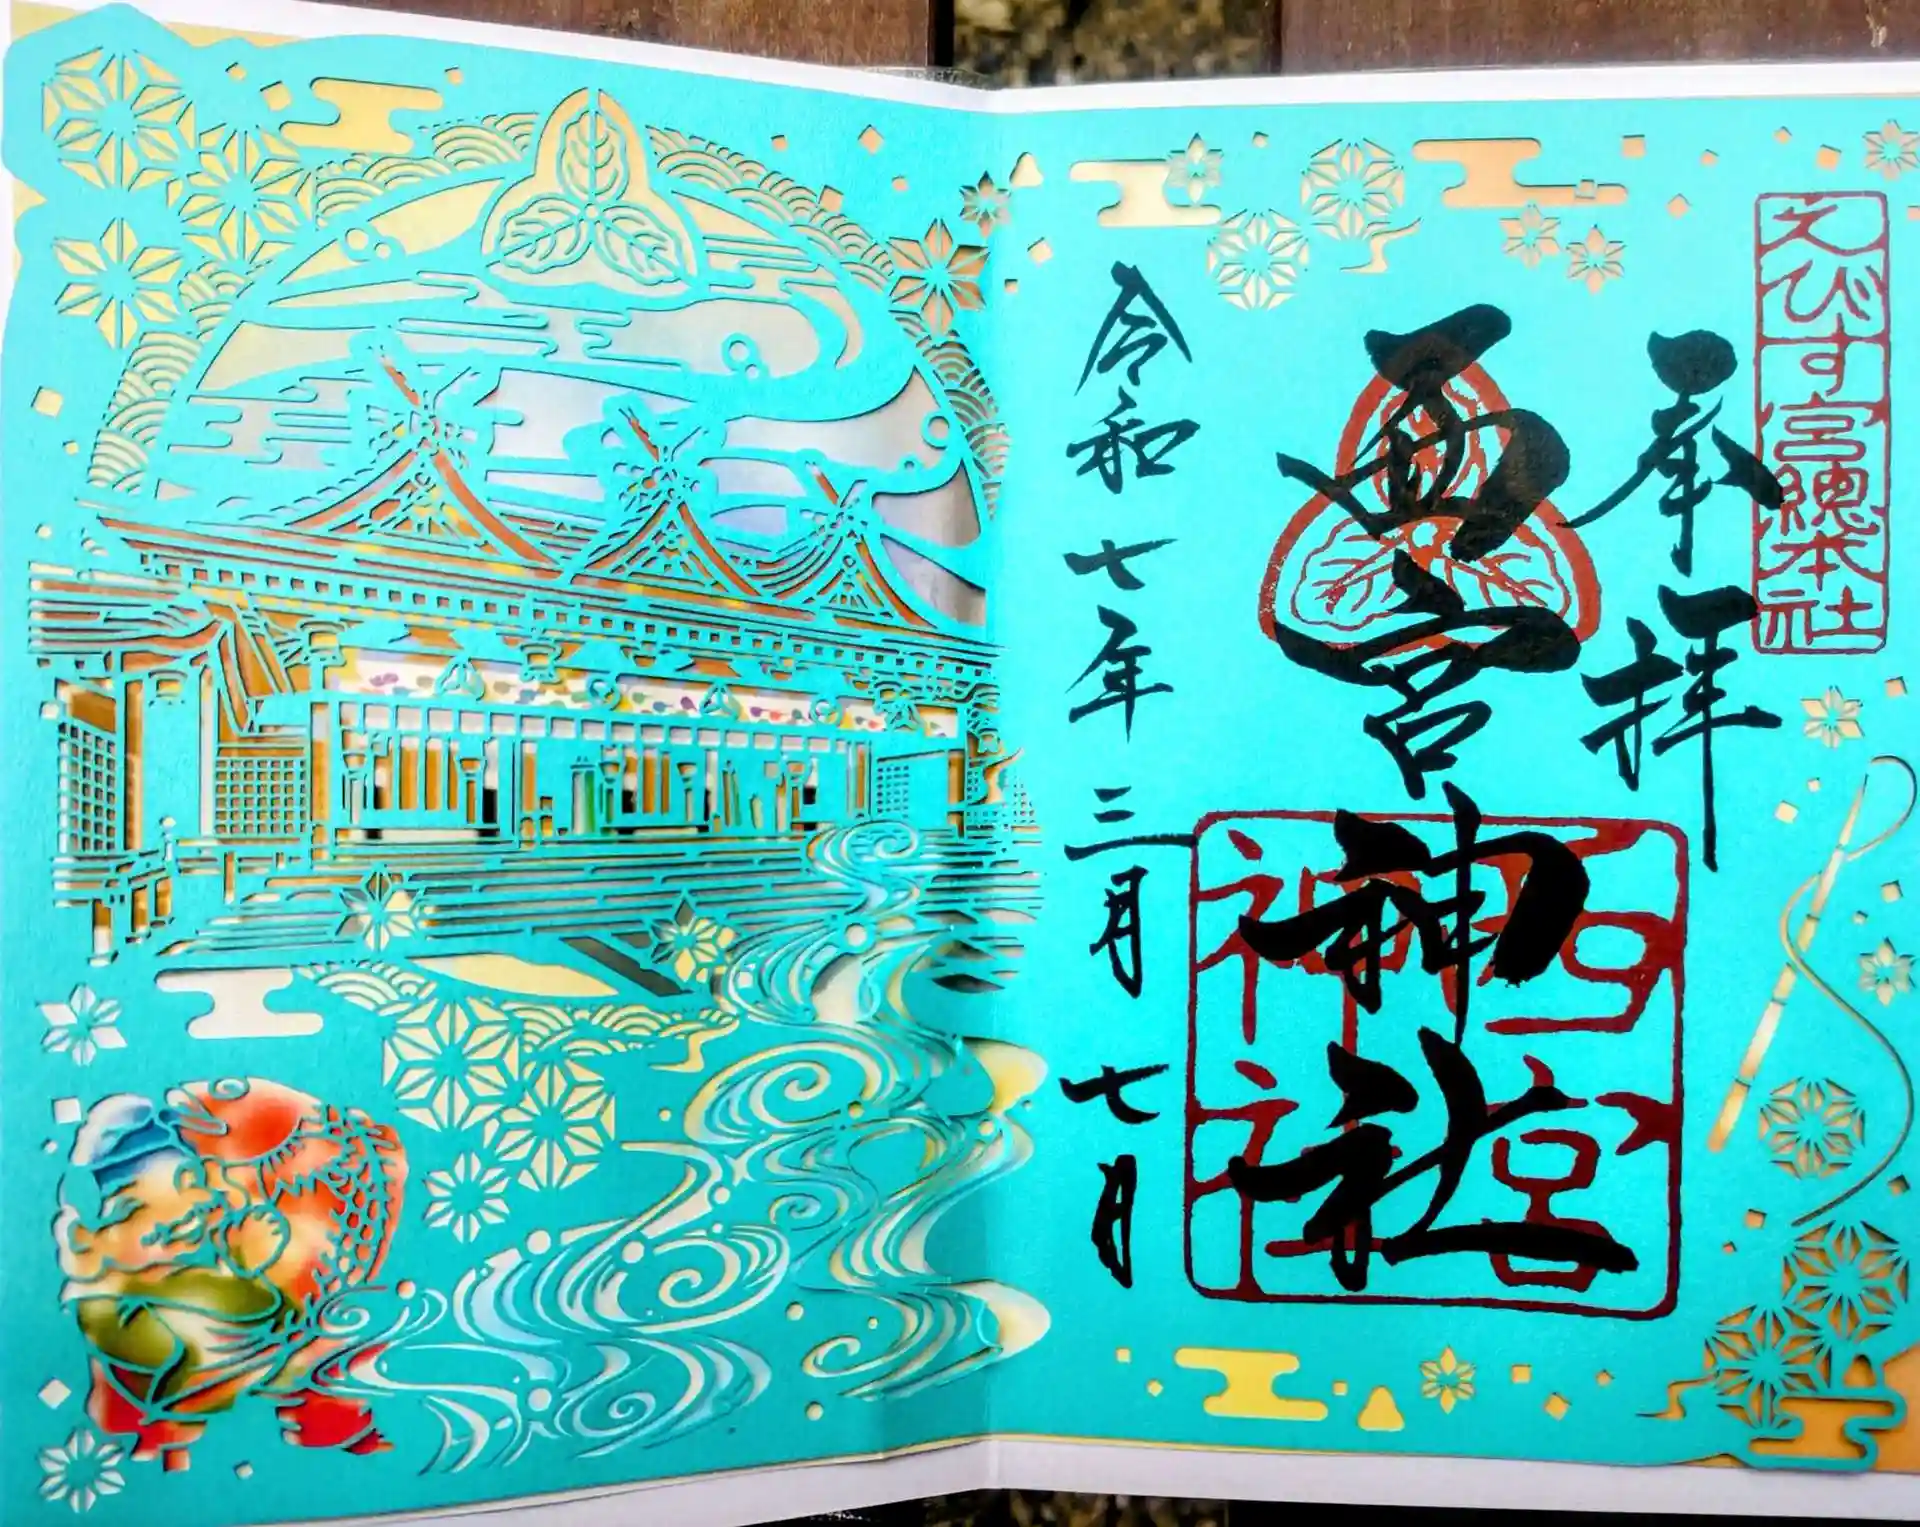 えびす宮總本社
奉拝
西宮神社
西宮
神社
令和七年三月七月